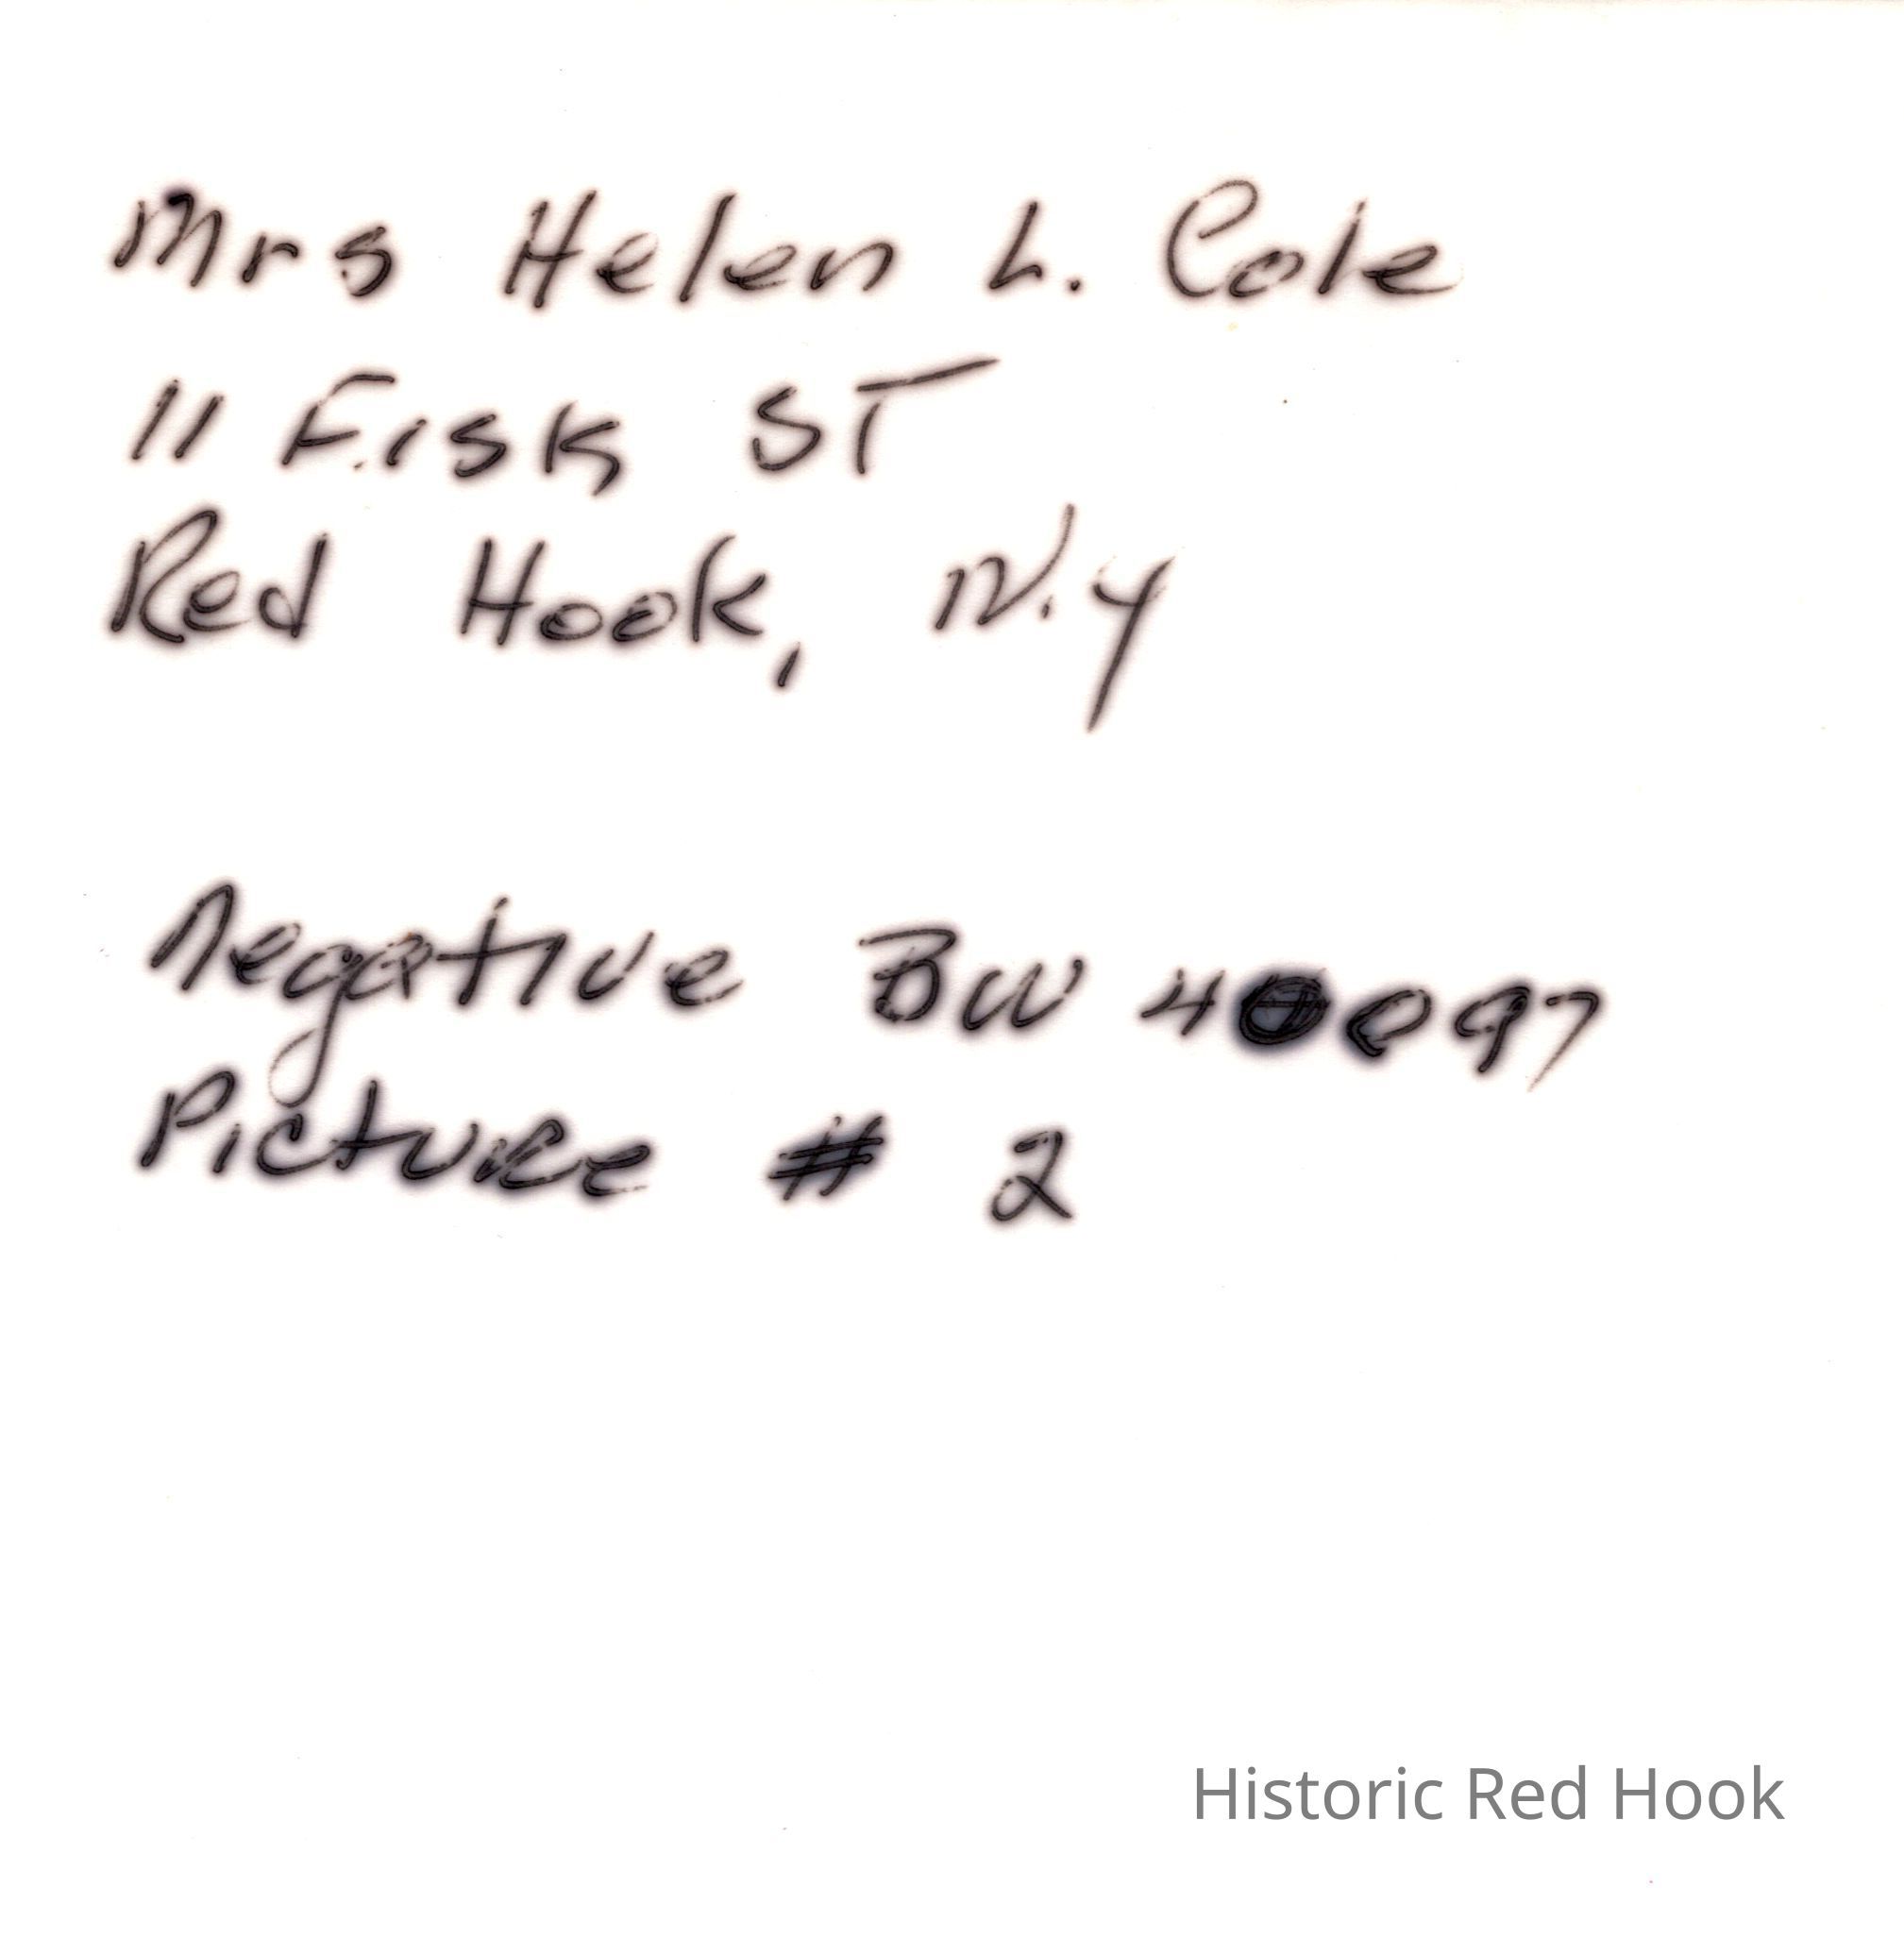 Mrs Helen L. Cole
11 Fisk ST
Red Hook, N.Y
Negative BW
Picture # 2
Historic Red Hook